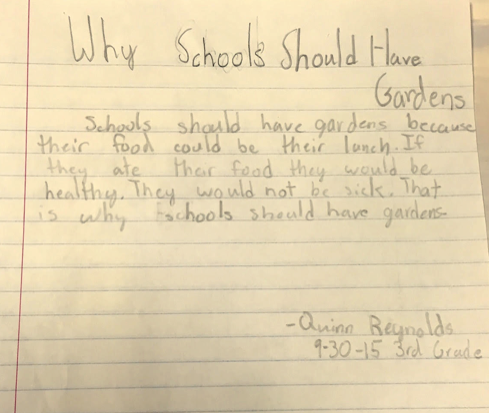 Why Schools Should Have
Gardens
Schools should have gardens because
their food could be their lunch. If
they ate their food they would be
healthy. They would not be sick. That
is why schools should have gardens.
-Quinn Reynolds
9-30-15 3rd Grade